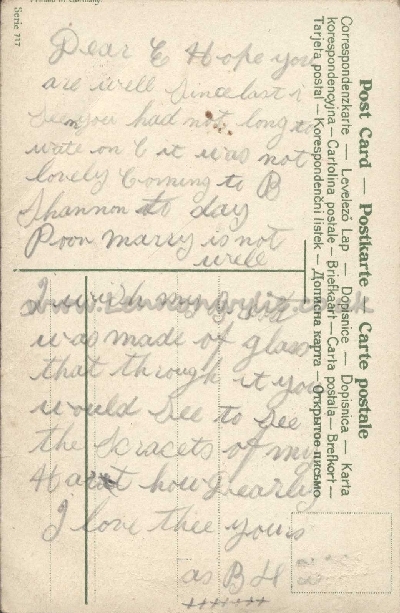 Printed in Germany
Serie 717
Post Card — Postkarte — Carte postale
Correspondenzkarte — Levelező Lap — Dopisnice — Dopisnica — Karta
korespondencyjna — Cartolina postale — Briefkaart — Carta postala — Brefkort —
Tarjeta postal — Korespondenční lístek — Дописна карта — Открытое письмо
Dear C Hope you
are well Since last i
Sen you had not long to
wate on C it was not
lovely Coming to B
Shannon to day
Poon marry is not
well
I wish my Hart
was made of glass
that through it you
would See to See
the Scracets of my
Hart how Dearly
I love thee yours
as B H
+++++++